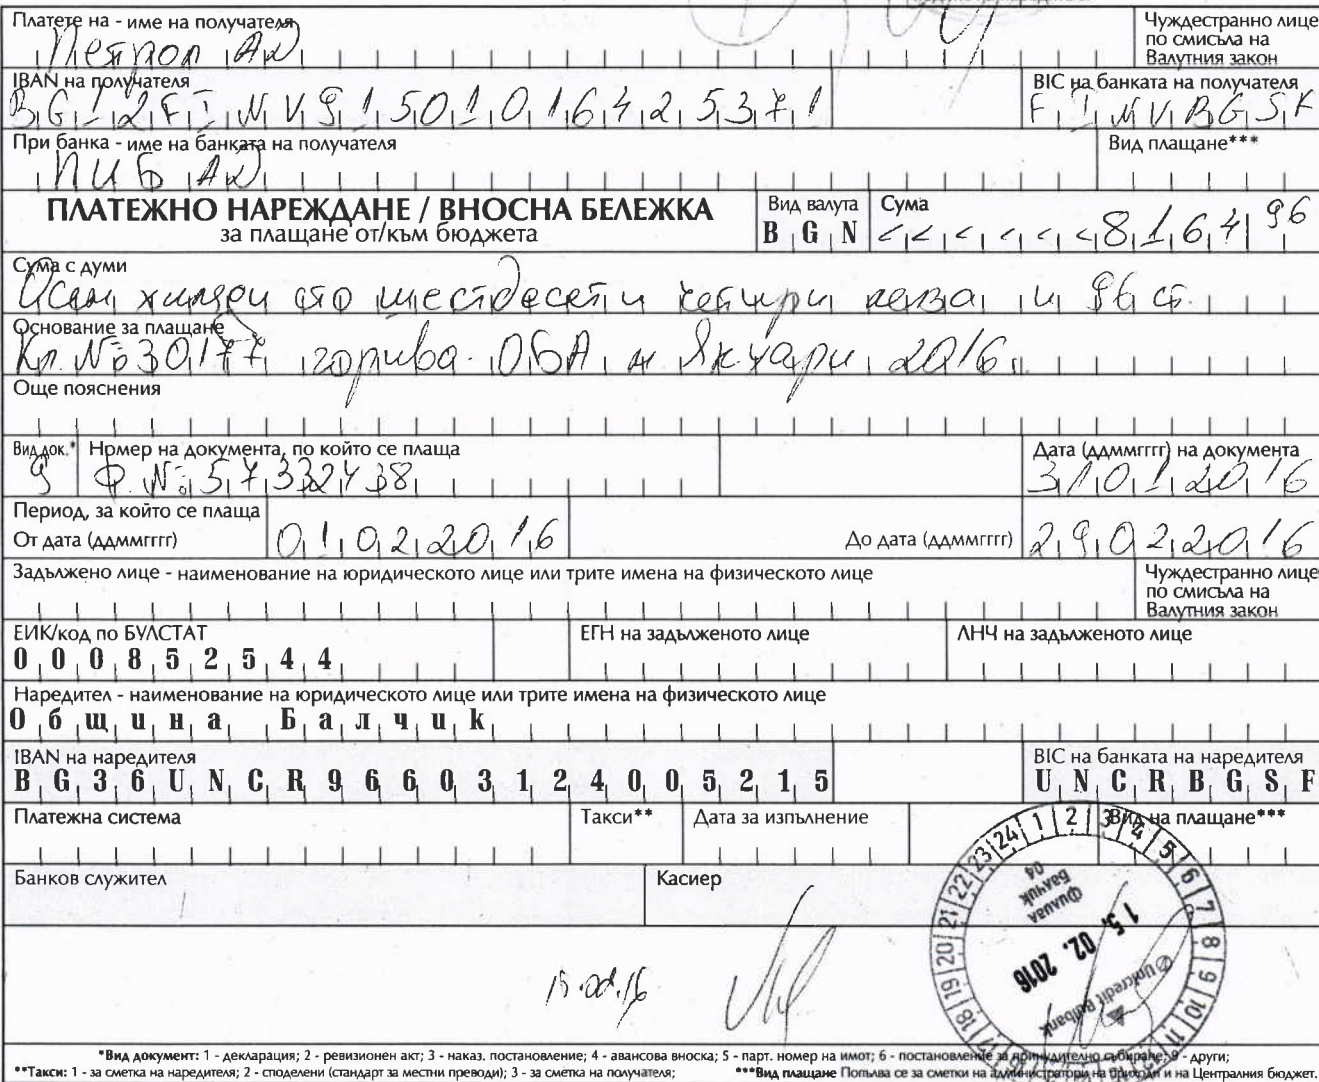 Платете на - име на получателя
Чуждестранно лице по смисъла на Валутния закон
Петрол АД
IBAN на получателя
BIC на банката на получателя
BG12FINV91501016425371
FINVBGSF
При банка - име на банката на получателя
Вид плащане***
ПИБ АД
ПЛАТЕЖНО НАРЕЖДАНЕ / ВНОСНА БЕЛЕЖКА
за плащане от/към бюджета
Вид валута
Сума
BGN
<<<<<<8164 96
Сума с думи
Осем хиляди сто шестдесет и четири лева и 96 ст.
Основание за плащане
Кл. №30177 горива ОБА м Януари 2016
Още пояснения
Вид док.*
Номер на документа, по който се плаща
Дата (ддммгггг) на документа
9
Ф. №: 57332438
31012016
Период, за който се плаща
От дата (ддммгггг)
01022016
До дата (ддммгггг)
29022016
Задължено лице - наименование на юридическото лице или трите имена на физическото лице
Чуждестранно лице по смисъла на Валутния закон
ЕИК/код по БУЛСТАТ
ЕГН на задълженото лице
ЛНЧ на задълженото лице
000852544
Наредител - наименование на юридическото лице или трите имена на физическото лице
Община Балчик
IBAN на наредителя
BIC на банката на наредителя
BG36UNCR96603124005215
UNCRBGSF
Платежна система
Такси**
Дата за изпълнение
Вид на плащане***
Банков служител
Касиер
1 2 3 4 5 6 7 8 9 10 11 17 18 19 20 21 22 23 24
филиал
Балчик
04
15. 02. 2016
UniCredit Bulbank
*Вид документ: 1 - декларация; 2 - ревизионен акт; 3 - наказ. постановление; 4 - авансова вноска; 5 - парт. номер на имот; 6 - постановление за принудително събиране; 9 - други;
**Такси: 1 - за сметка на наредителя; 2 - споделени (стандарт за местни преводи); 3 - за сметка на получателя;
***Вид плащане Попълва се за сметки на администратори на приходи и на Централния бюджет.